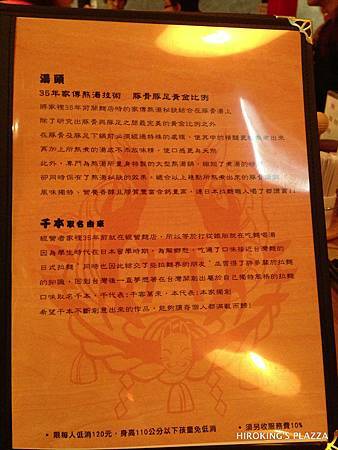 湯頭
35年家傳熬湯技術 豚骨豚足黃金比例
將家裡35年前開麵店時的家傳熬湯秘訣結合在豚骨湯上
除了研究出豚骨與豚足之間最完美的黃金比例之外
在豚骨及豚足下鍋前必須經過特殊的處理，使其中的精髓更能煮出來
再加上所熬煮的湯水不而放味精，使口感更為天然
此外，專門為熬湯所量身特製的大型熬湯鍋，縮短了煮湯的時間
卻同時保有了熬湯秘訣的效果，總合以上幾點所熬煮出來的豚骨湯頭
風味獨特、營養香醇且膠質豐富含鈣量高，連日本拉麵職人喝了都讚賞
千本 取名由來
經營者家裡35年前就在經營麵店，所以等於打從娘胎就在吃麵喝湯
因為學生時代在日本留學時期，為解鄉愁，吃遍了口味接近台灣麵的
日式拉麵，同時也因此結交了些拉麵界的朋友，並習得了許多關於拉麵
的知識，回到台灣後一直夢想著在台灣開創出屬於自己獨特風格的拉麵
口味取名千本，千代表:千客萬來，本代表:本家獨創
希望千本不斷創意出來的作品，能夠讓每個人都滿載而歸!
* 限每人低消120元，身高110公分以下孩童免低消
* 須另收服務費10%
HIROKING'S PLAZZA